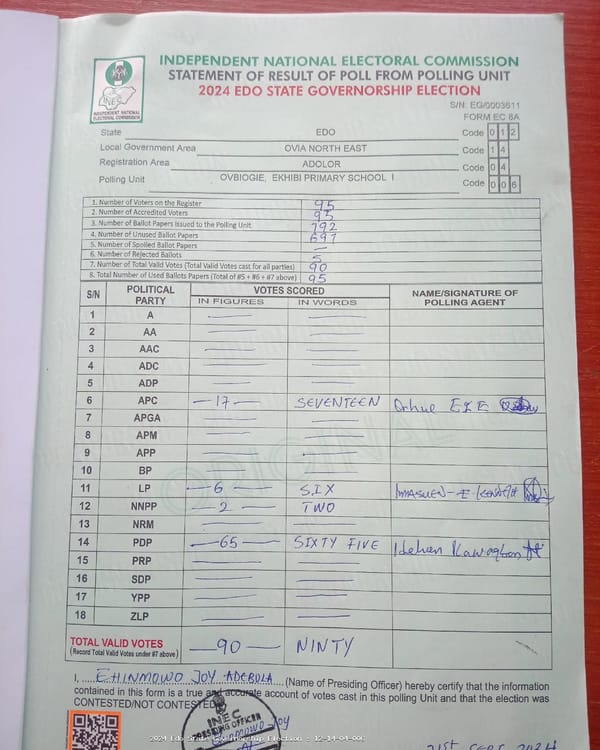 INDEPENDENT NATIONAL ELECTORAL COMMISSION
STATEMENT OF RESULT OF POLL FROM POLLING UNIT
2024 EDO STATE GOVERNORSHIP ELECTION
INEC
INDEPENDENT NATIONAL ELECTORAL COMMISSION
S/N: EG/0003611
FORM EC 8A
State EDO Code 0 1 2
Local Government Area OVIA NORTH EAST Code 1 4
Registration Area ADOLOR Code 0 4
Polling Unit OVBIOGIE, EKHIBI PRIMARY SCHOOL I Code 0 0 6
1. Number of Voters on the Register 95
2. Number of Accredited Voters 95
3. Number of Ballot Papers Issued to the Polling Unit 792
4. Number of Unused Ballot Papers 697
5. Number of Spoiled Ballot Papers —
6. Number of Rejected Ballots 5
7. Number of Total Valid Votes (Total Valid Votes cast for all parties) 90
8. Total Number of Used Ballots Papers (Total of #5 + #6 + #7 above) 95
S/N POLITICAL PARTY VOTES SCORED NAME/SIGNATURE OF POLLING AGENT
IN FIGURES IN WORDS
1 A
2 AA
3 AAC
4 ADC
5 ADP
6 APC —17— SEVENTEEN
7 APGA
8 APM
9 APP
10 BP
11 LP —6— SIX
12 NNPP —2— TWO
13 NRM
14 PDP —65— SIXTY FIVE
15 PRP
16 SDP
17 YPP
18 ZLP
ORIGINAL
TOTAL VALID VOTES —90— NINTY
(Record Total Valid Votes under #7 above)
I, EHINMOWO JOY ADEBOLA (Name of Presiding Officer) hereby certify that the information
contained in this form is a true and accurate account of votes cast in this polling Unit and that the election was
CONTESTED/NOT CONTESTED
INEC
PRESIDING OFFICER
2024 Edo State Governorship Election
21st Sept 2024